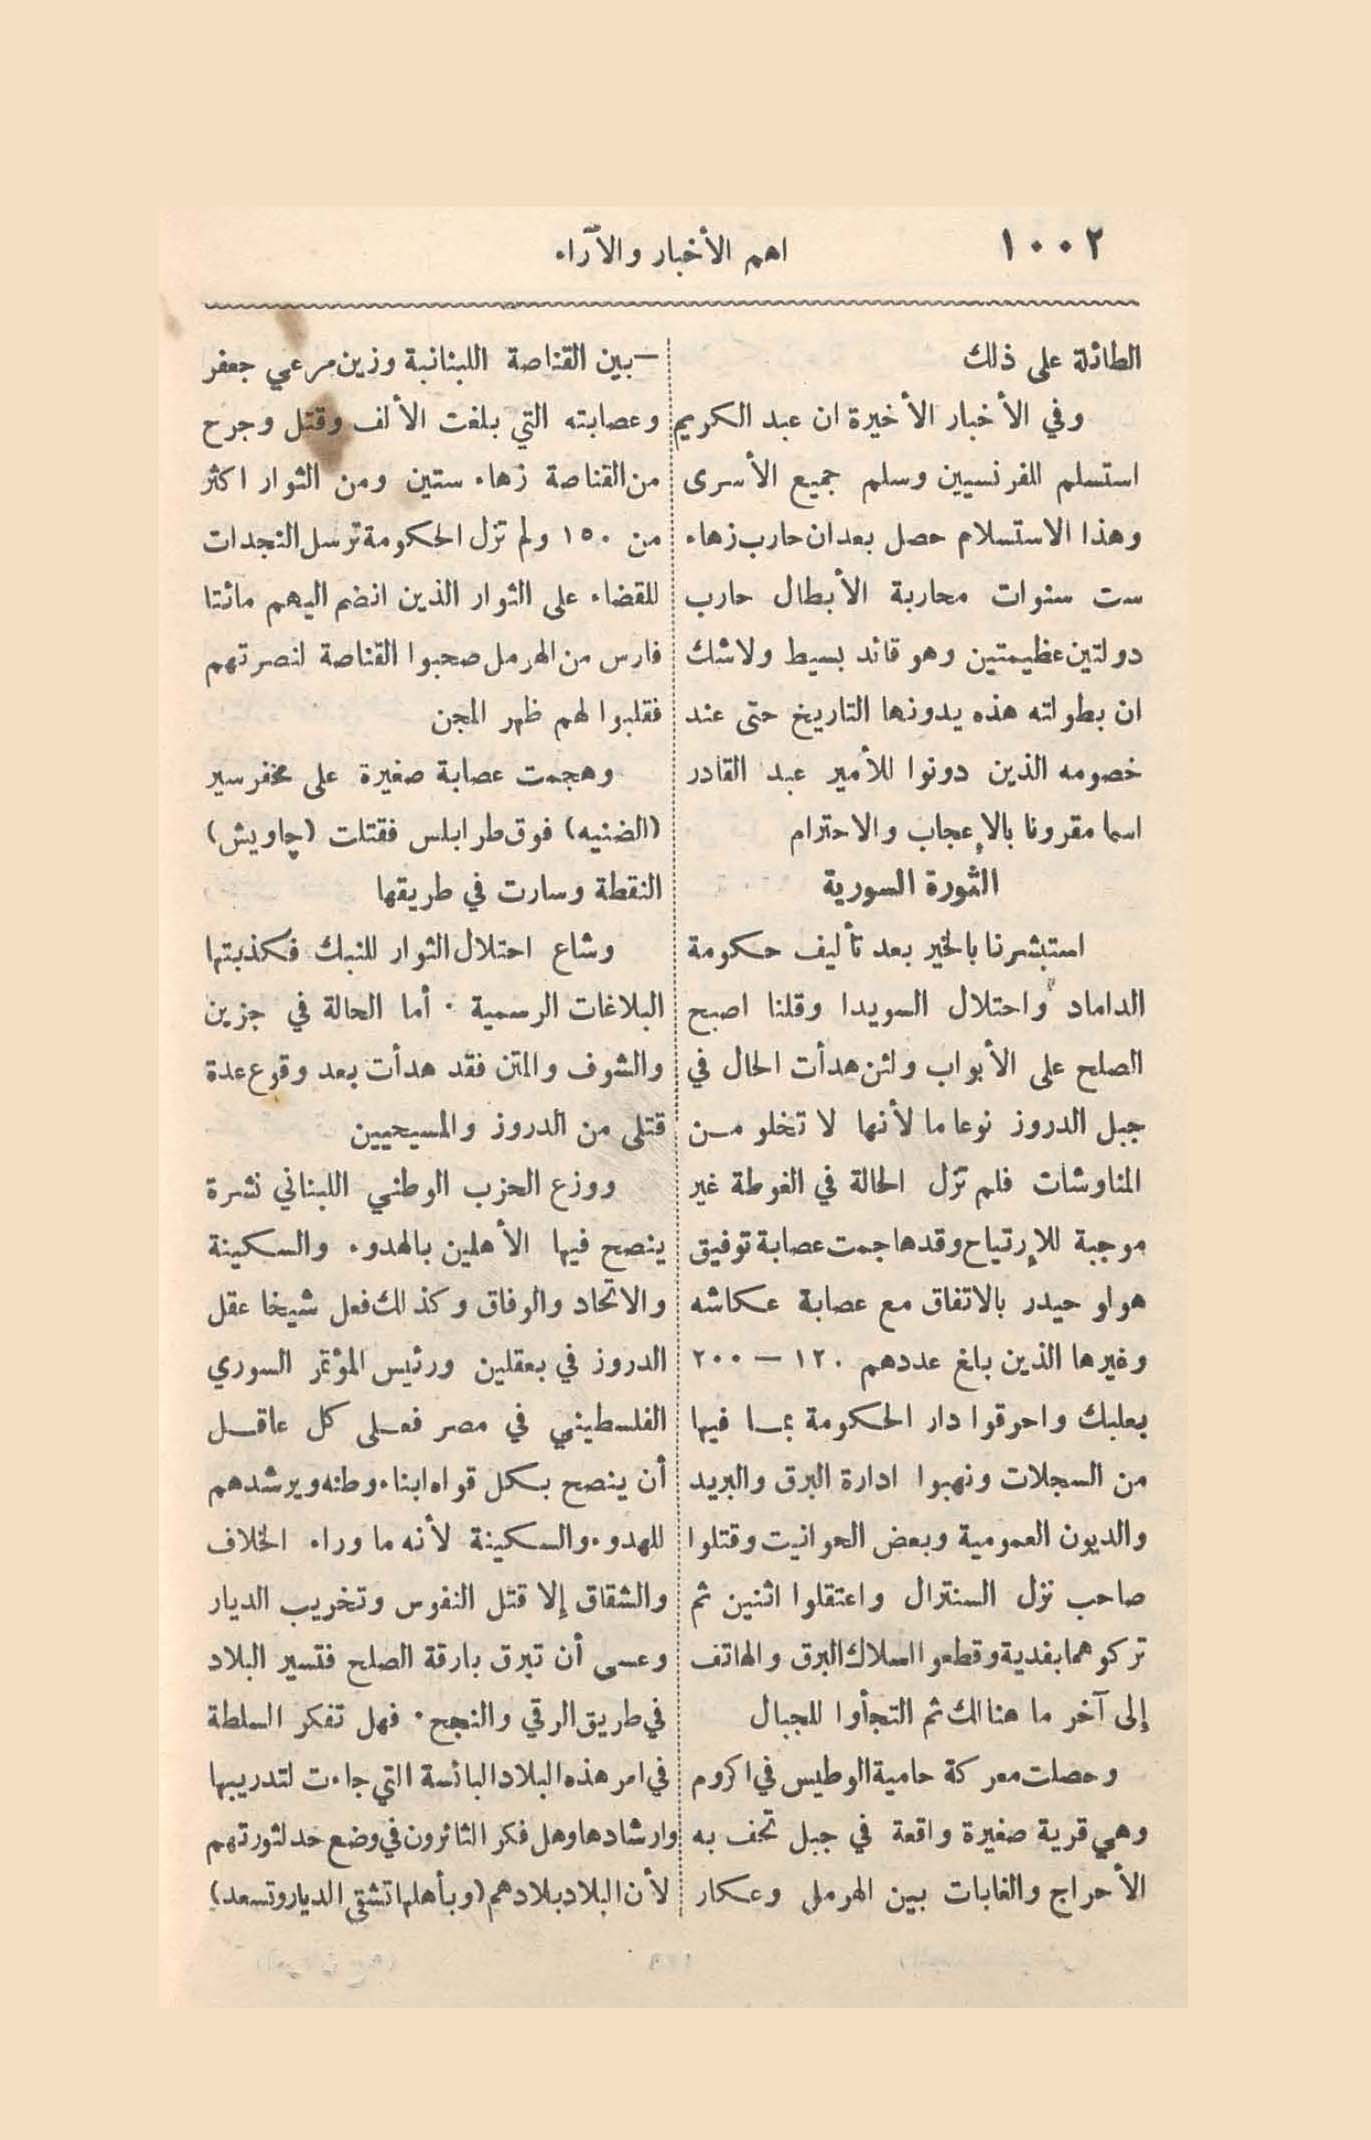 ١٠٠٢
اهم الأخبار والآراء
الطائلة على ذلك
وفي الأخبار الأخيرة ان عبد الكريم
استسلم للفرنسيين وسلم جميع الأسرى
وهذا الاستسلام حصل بعد ان حارب زهاء
ست سنوات محاربة الأبطال حارب
دولتين عظيمتين وهو قائد بسيط ولا شك
ان بطولته هذه يدونها التاريخ حتى عند
خصومه الذين دونوا للأمير عبد القادر
اسما مقرونا بالإعجاب والاحترام
الثورة السورية
استبشرنا بالخير بعد تأليف حكومة
الداماد واحتلال السويدا وقلنا اصبح
الصلح على الأبواب ولئن هدأت الحال في
جبل الدروز نوعا ما لأنها لا تخلو من
المناوشات فلم تزل الحالة في الغوطة غير
موجبة للإرتياح وقد هاجمت عصابة توفيق
هولو حيدر بالاتفاق مع عصابة عكاشه
وغيرها الذين بلغ عددهم ١٢٠ — ٢٠٠
بعلبك واحرقوا دار الحكومة بما فيها
من السجلات ونهبوا ادارة البرق والبريد
والديون العمومية وبعض الحوانيت وقتلوا
صاحب نزل السنترال واعتقلوا اثنين ثم
تركوهما بفدية وقطعوا اسلاك البرق والهاتف
إلى آخر ما هنالك ثم التجأوا للجبال
وحصلت معركة حامية الوطيس في اكروم
وهي قرية صغيرة واقعة في جبل تحف به
الأحراج والغابات بين الهرمل وعكار
— بين القناصة اللبنانية وزين مرعي جعفر
وعصابته التي بلغت الألف وقتل وجرح
من القناصة زهاء ستين ومن الثوار اكثر
من ١٥٠ ولم تزل الحكومة ترسل النجدات
للقضاء على الثوار الذين انضم اليهم مائتا
فارس من الهرمل صحبوا القناصة لنصرتهم
فقلبوا لهم ظهر المجن
وهجمت عصابة صغيرة على مخفر سير
(الضنيه) فوق طرابلس فقتلت (چاويش)
النقطة وسارت في طريقها
وشاع احتلال الثوار للنبك فكذبتها
البلاغات الرسمية . أما الحالة في جزين
والشوف والمتن فقد هدأت بعد وقوع عدة
قتلى من الدروز والمسيحيين
ووزع الحزب الوطني اللبناني نشرة
ينصح فيها الأهلين بالهدوء والسكينة
والاتحاد والوفاق وكذلك فعل شيخا عقل
الدروز في بعقلين ورئيس المؤتمر السوري
الفلسطيني في مصر فعلى كل عاقل
أن ينصح بكل قواه ابناء وطنه ويرشدهم
للهدوء والسكينة لأنه ما وراء الخلاف
والشقاق إلا قتل النفوس وتخريب الديار
وعسى أن تبرق بارقة الصلح فتسير البلاد
في طريق الرقي والنجح . فهل تفكر السلطة
في امر هذه البلاد البائسة التي جاءت لتدريبها
وارشادها وهل فكر الثائرون في وضع حد لثورتهم
لأن البلاد بلادهم (وبأهلها تشقى الديار وتسعد)